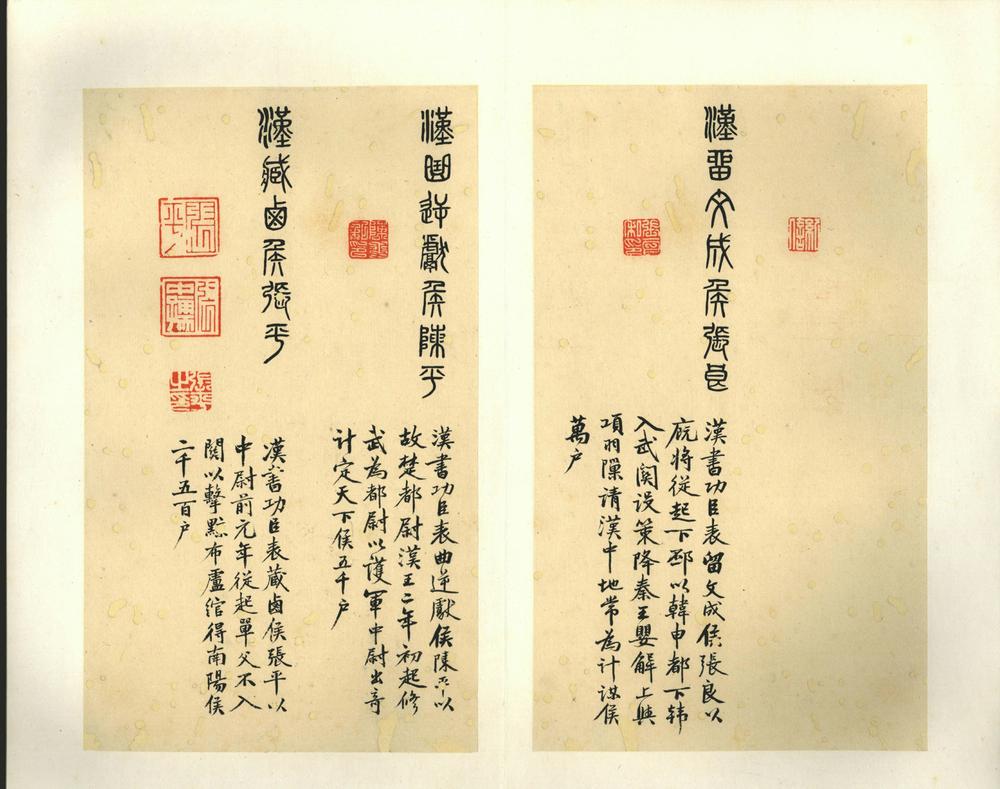 漢留文成侯張良
漢書功臣表留文成侯張良以
廄將從起下邳以韓申都下韩
入武関設策降秦王嬰解上與
項羽隟請漢中地常為計謀侯
萬户
漢曲逆獻侯陳平
漢書功臣表曲逆獻侯陳平以
故楚都尉漢王二年初起修
武為都尉以護軍中尉出奇
计定天下侯五千户
漢臧鹵侯張平
漢書功臣表蔵鹵侯張平以
中尉前元年從起單父不入
関以擊黥布盧綰得南陽侯
二千五百户